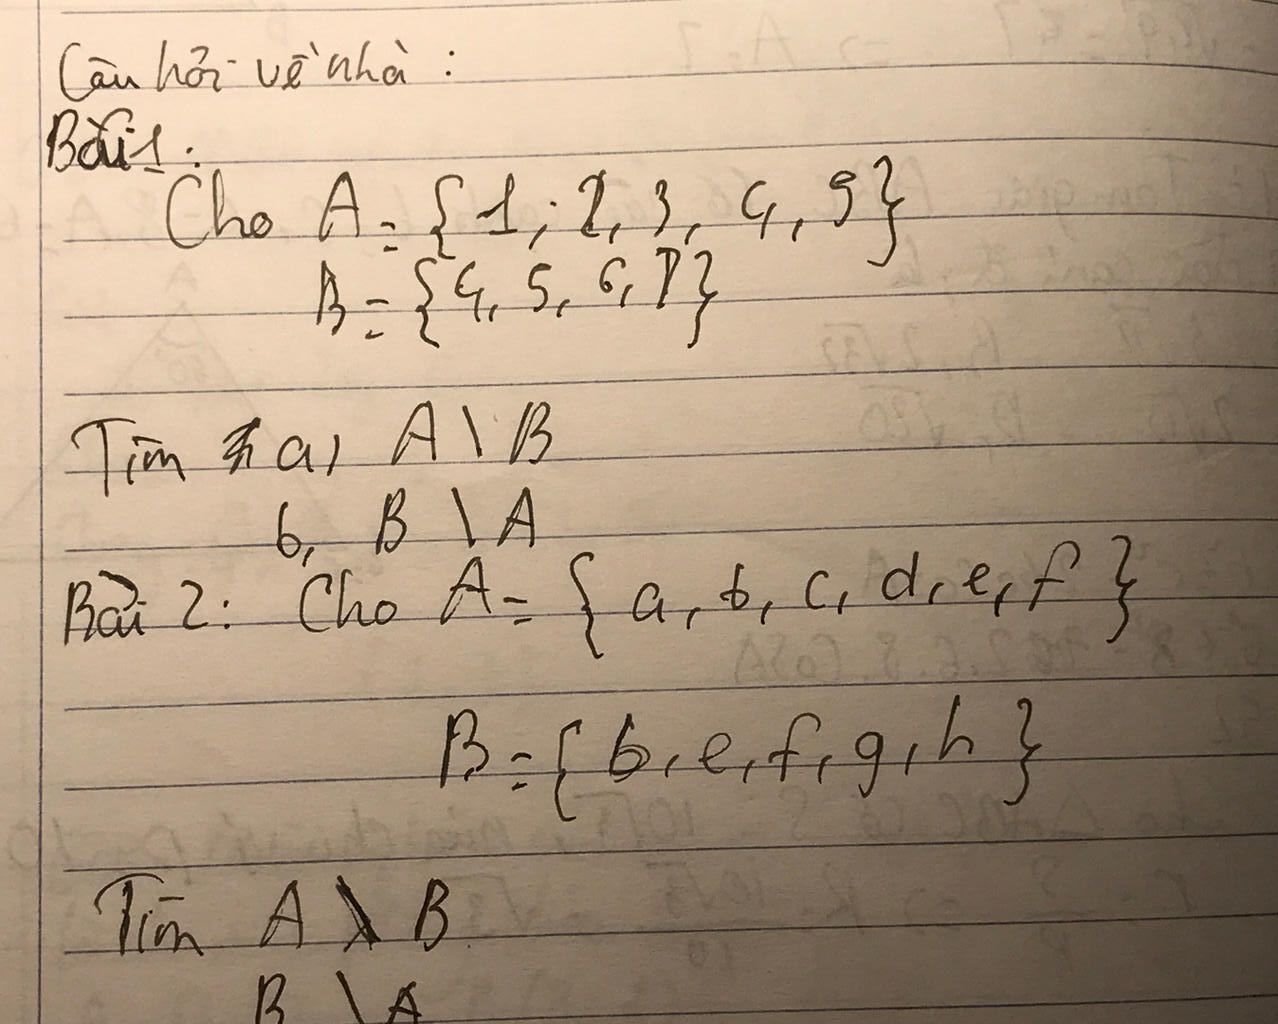 Câu hỏi về nhà :
Bài 1 :
Cho A = {1; 2, 3, 4, 5}
B = {4, 5, 6, 7}
Tìm a, A \ B
b, B \ A
Bài 2 : Cho A = { a, b, c, d, e, f }
B = { b, e, f, g, h }
Tìm A \ B
B \ A